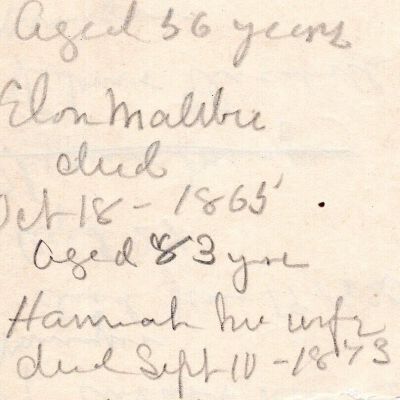 Aged 56 years
Elon Maltbie
died
Oct 18 - 1865
aged 83 yrs
Hannah his wife
died Sept 10 - 1873